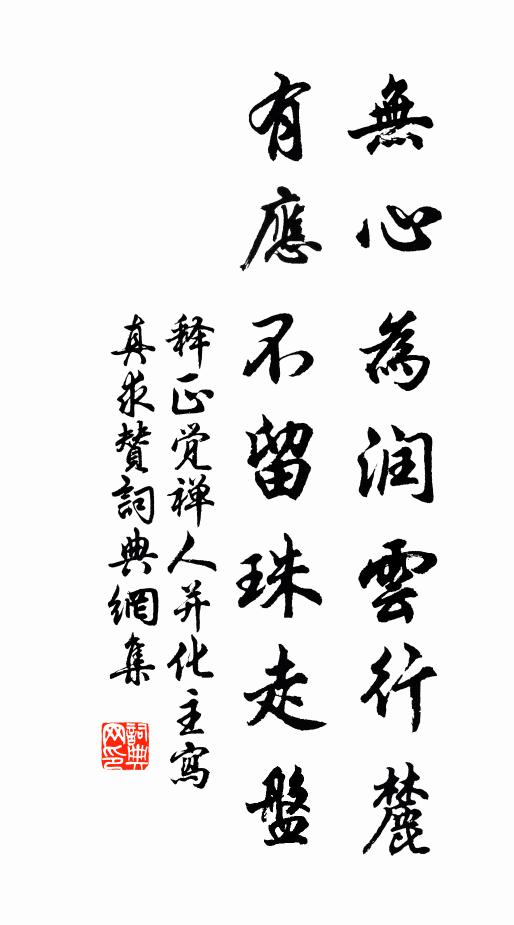 無心為润雲行麓
有應不留珠走盤
释正觉禅人并化主寫
真求贊詞典網集
詞典网印